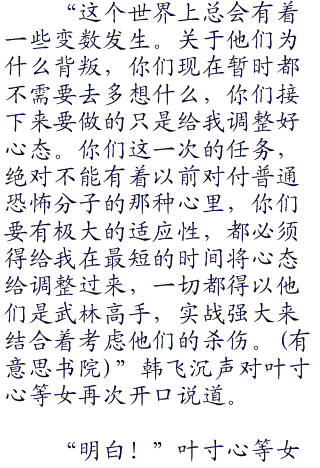 “这个世界上总会有着
一些变数发生。关于他们为
什么背叛，你们现在暂时都
不需要去多想什么，你们接
下来要做的只是给我调整好
心态。你们这一次的任务，
绝对不能有着以前对付普通
恐怖分子的那种心里，你们
要有极大的适应性，都必须
得给我在最短的时间将心态
给调整过来，一切都得以他
们是武林高手，实战强大来
结合着考虑他们的杀伤。(有
意思书院)”韩飞沉声对叶寸
心等女再次开口说道。
“明白！”叶寸心等女